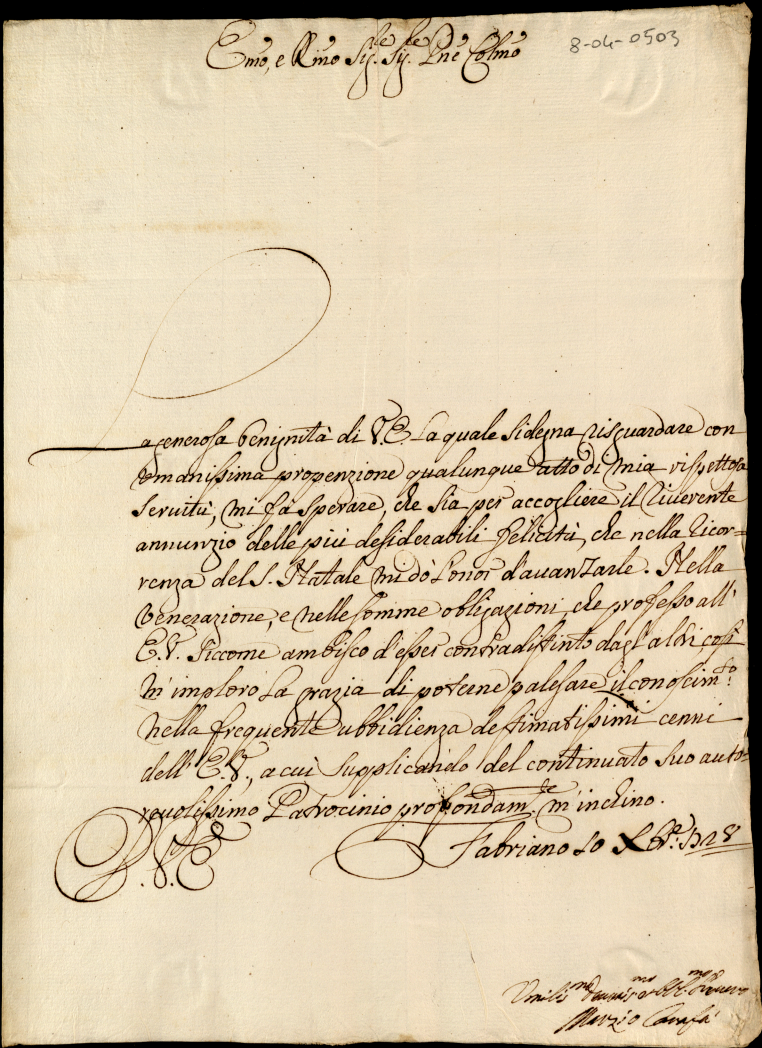 Emo, e Rmo Sig.re Sig.re Pne Colmo
8-04-0503
La generosa benignità di V.E. la quale si degna risguardare con
umanissima propenzione qualunque atto di mia rispettosa
servitù, mi fà sperare, che sia per accogliere il riverente
annunzio delle più desiderabili felicità, che nella ricor=
renza del S. Natale mi dò l'onor d'avanzarle. Nella
venerazione, e nelle somme obligazioni, che professo all'
E.V. siccome ambisco d'esser contradistinto dagl'altri, così
m'imploro la grazia di poterne palesare il conoscim.to
nella frequente ubbidienza de stimatissimi cenni
dell'E.V., a cui supplicando del continuato suo auto=
revolissimo Patrocinio profondam.te m'inchino.
Fabriano 10 Xbr.e 1728
D.V.E.
Umilis.mo
Marzio Carafa